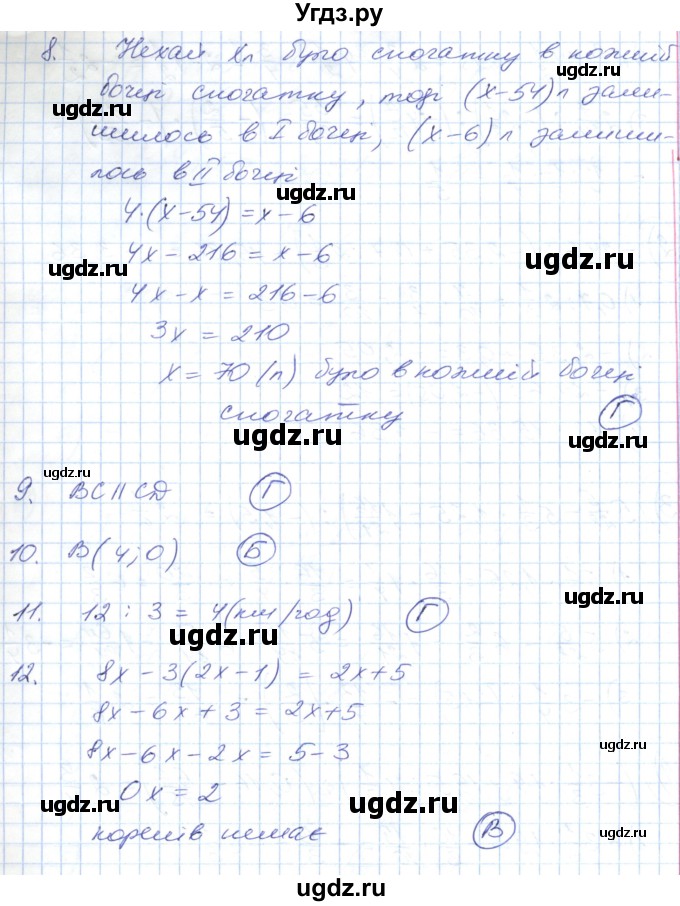 Угдз.ру
8. Нехай x л було спогатку в кожній
бочці спогатку, тоді (x-54) л зали-
шилось в I бочці, (x-6) л залиши-
лось в II бочці
ugdz.ru
4·(x-54) = x-6
ugdz.ru
4x - 216 = x - 6
ugdz.ru
ugdz.ru
4x - x = 216 - 6
3x = 210
ugdz.ru
x = 70 (л) було в кожній бочці
спогатку Г
ugdz.ru
ugdz.ru
ugdz.ru
9. BC || CD Г
ugdz.ru
10. B(4; 0) Б
ugdz.ru
11. 12 : 3 = 4 (км/год) Г
ugdz.ru
12. 8x - 3(2x - 1) = 2x + 5
ugdz.ru
8x - 6x + 3 = 2x + 5
8x - 6x - 2x = 5 - 3
ugdz.ru
0x = 2
ugdz.ru
ugdz.ru
коренів немає В
ugdz.ru
ugdz.ru
ugdz.ru